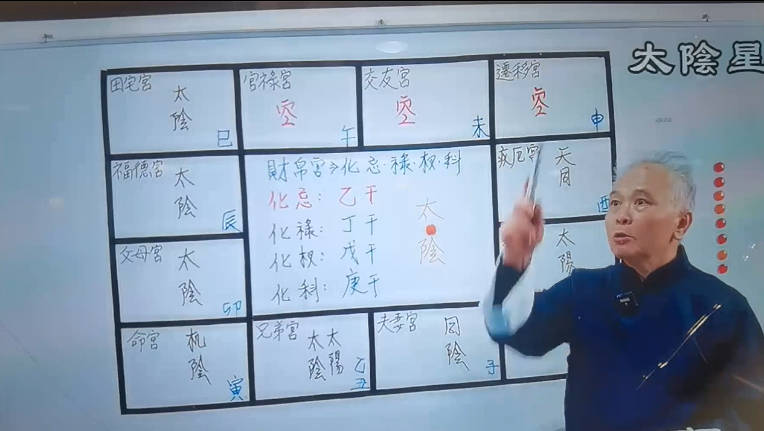 太陰星
田宅宮
太陰
巳
官祿宮
空
午
交友宮
空
未
遷移宮
空
申
福德宮
太陰
辰
財帛宮→化忌·祿·权·科
化忌：乙干
化祿：丁干
化权：戊干
化科：庚干
太陰
疾厄宮
天同
酉
父母宮
太陰
卯
太陽
命宮
机陰
寅
兄弟宮
太陰
太陽
乙丑
夫妻宮
同陰
子